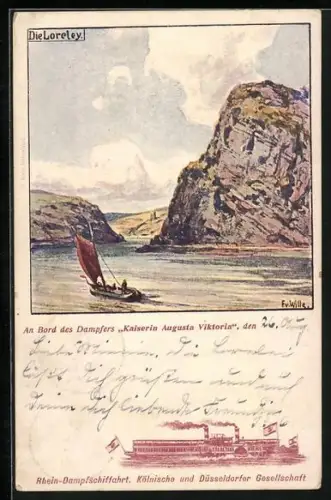 Die Loreley.
Fr. Wille.
An Bord des Dampfers „Kaiserin Augusta Viktoria", den 26. Aug
Liebe Minna. Die Loreley
läßt Dich grüßen und auch
Deine Dich liebende Freundin
Rhein-Dampfschiffahrt. Kölnische und Düsseldorfer Gesellschaft